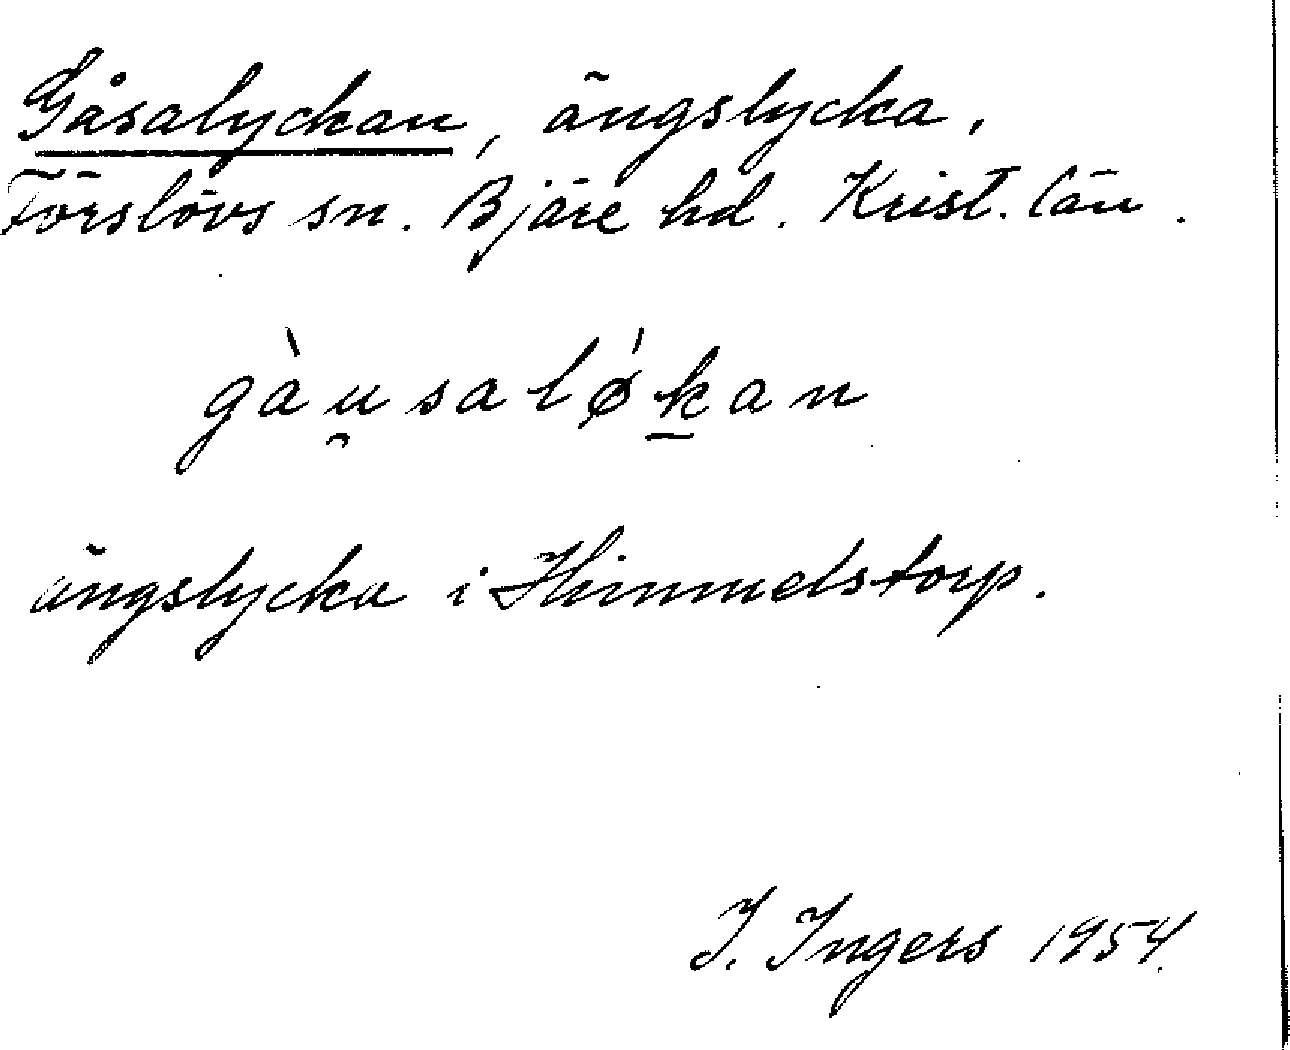 Gåsalyckan, ängslycka.
Förslövs sn. Bjäre hd. Krist. län.
gàu̯salǿk̲an
ängslycka i Himmelstorp.
I. Ingers 1954.